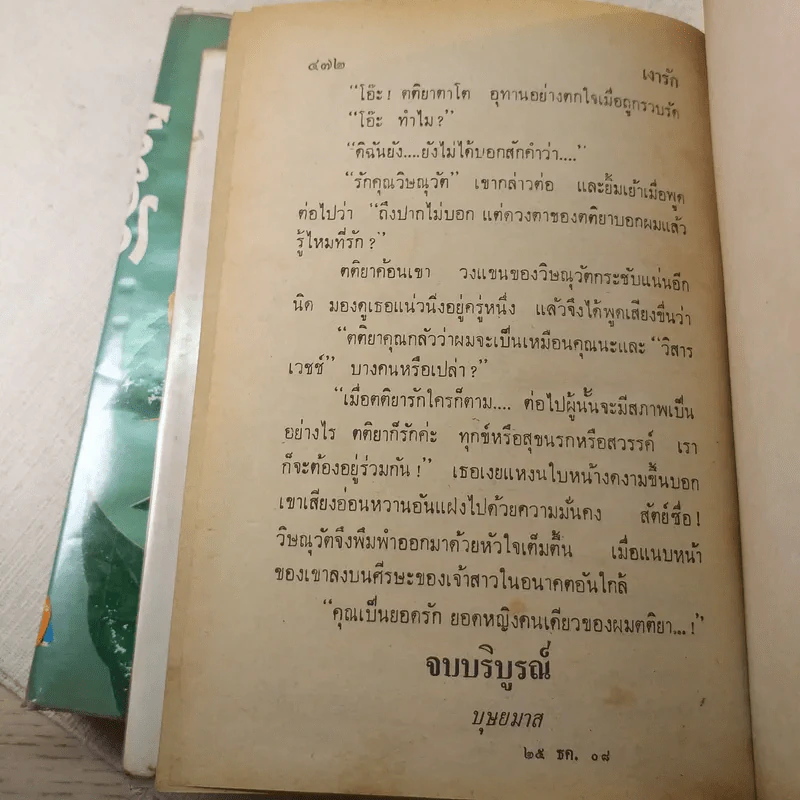 ๔๗๒ เงารัก
“โอ๊ะ! ตติยาตาโต อุทานอย่างตกใจเมื่อถูกรวบรัด
“โอ๊ะ ทำไม?”
“ดิฉันยัง....ยังไม่ได้บอกสักคำว่า....”
“รักคุณวิษณุวัต” เขากล่าวต่อ และยิ้มเย้าเมื่อพูด
ต่อไปว่า “ถึงปากไม่บอก แต่ดวงตาของตติยาบอกผมแล้ว
รู้ไหมที่รัก?”
ตติยาค้อนเขา วงแขนของวิษณุวัตกระชับแน่นอีก
นิด มองดูเธอแน่วนิ่งอยู่ครู่หนึ่ง แล้วจึงได้พูดเสียงขื่นว่า
“ตติยาคุณกลัวว่าผมจะเป็นเหมือนคุณนะและ “วิสาร
เวชช์” บางคนหรือเปล่า?”
“เมื่อตติยารักใครก็ตาม.... ต่อไปผู้นั้นจะมีสภาพเป็น
อย่างไร ตติยาก็รักค่ะ ทุกข์หรือสุขนรกหรือสวรรค์ เรา
ก็จะต้องอยู่ร่วมกัน!” เธอเงยแหงนใบหน้างดงามขึ้นบอก
เขาเสียงอ่อนหวานอันแฝงไปด้วยความมั่นคง สัตย์ซื่อ!
วิษณุวัตจึงพึมพำออกมาด้วยหัวใจเต็มตื้น เมื่อแนบหน้า
ของเขาลงบนศีรษะของเจ้าสาวในอนาคตอันใกล้
“คุณเป็นยอดรัก ยอดหญิงคนเดียวของผมตติยา...!”
จบบริบูรณ์
บุษยมาส
๒๕ ธค. ๐๘